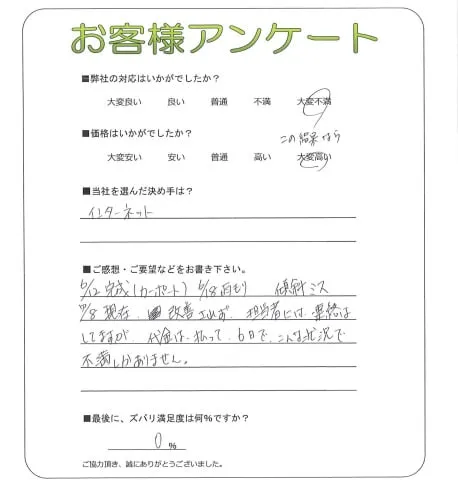 お客様アンケート
■弊社の対応はいかがでしたか？
大変良い 良い 普通 不満 大変不満
この結果なら
■価格はいかがでしたか？
大変安い 安い 普通 高い 大変高い
■当社を選んだ決め手は？
インターネット
■ご感想・ご要望などをお書き下さい。
6/12 完成(カーポート) 6/18雨もり 傾斜ミス
/8 現在、改善されず、担当者には、連絡は
してますが、代金は、払って、6日で、こんな状況で
不満しかありません。
■最後に、ズバリ満足度は何%ですか？
0 %
ご協力頂き、誠にありがとうございました。